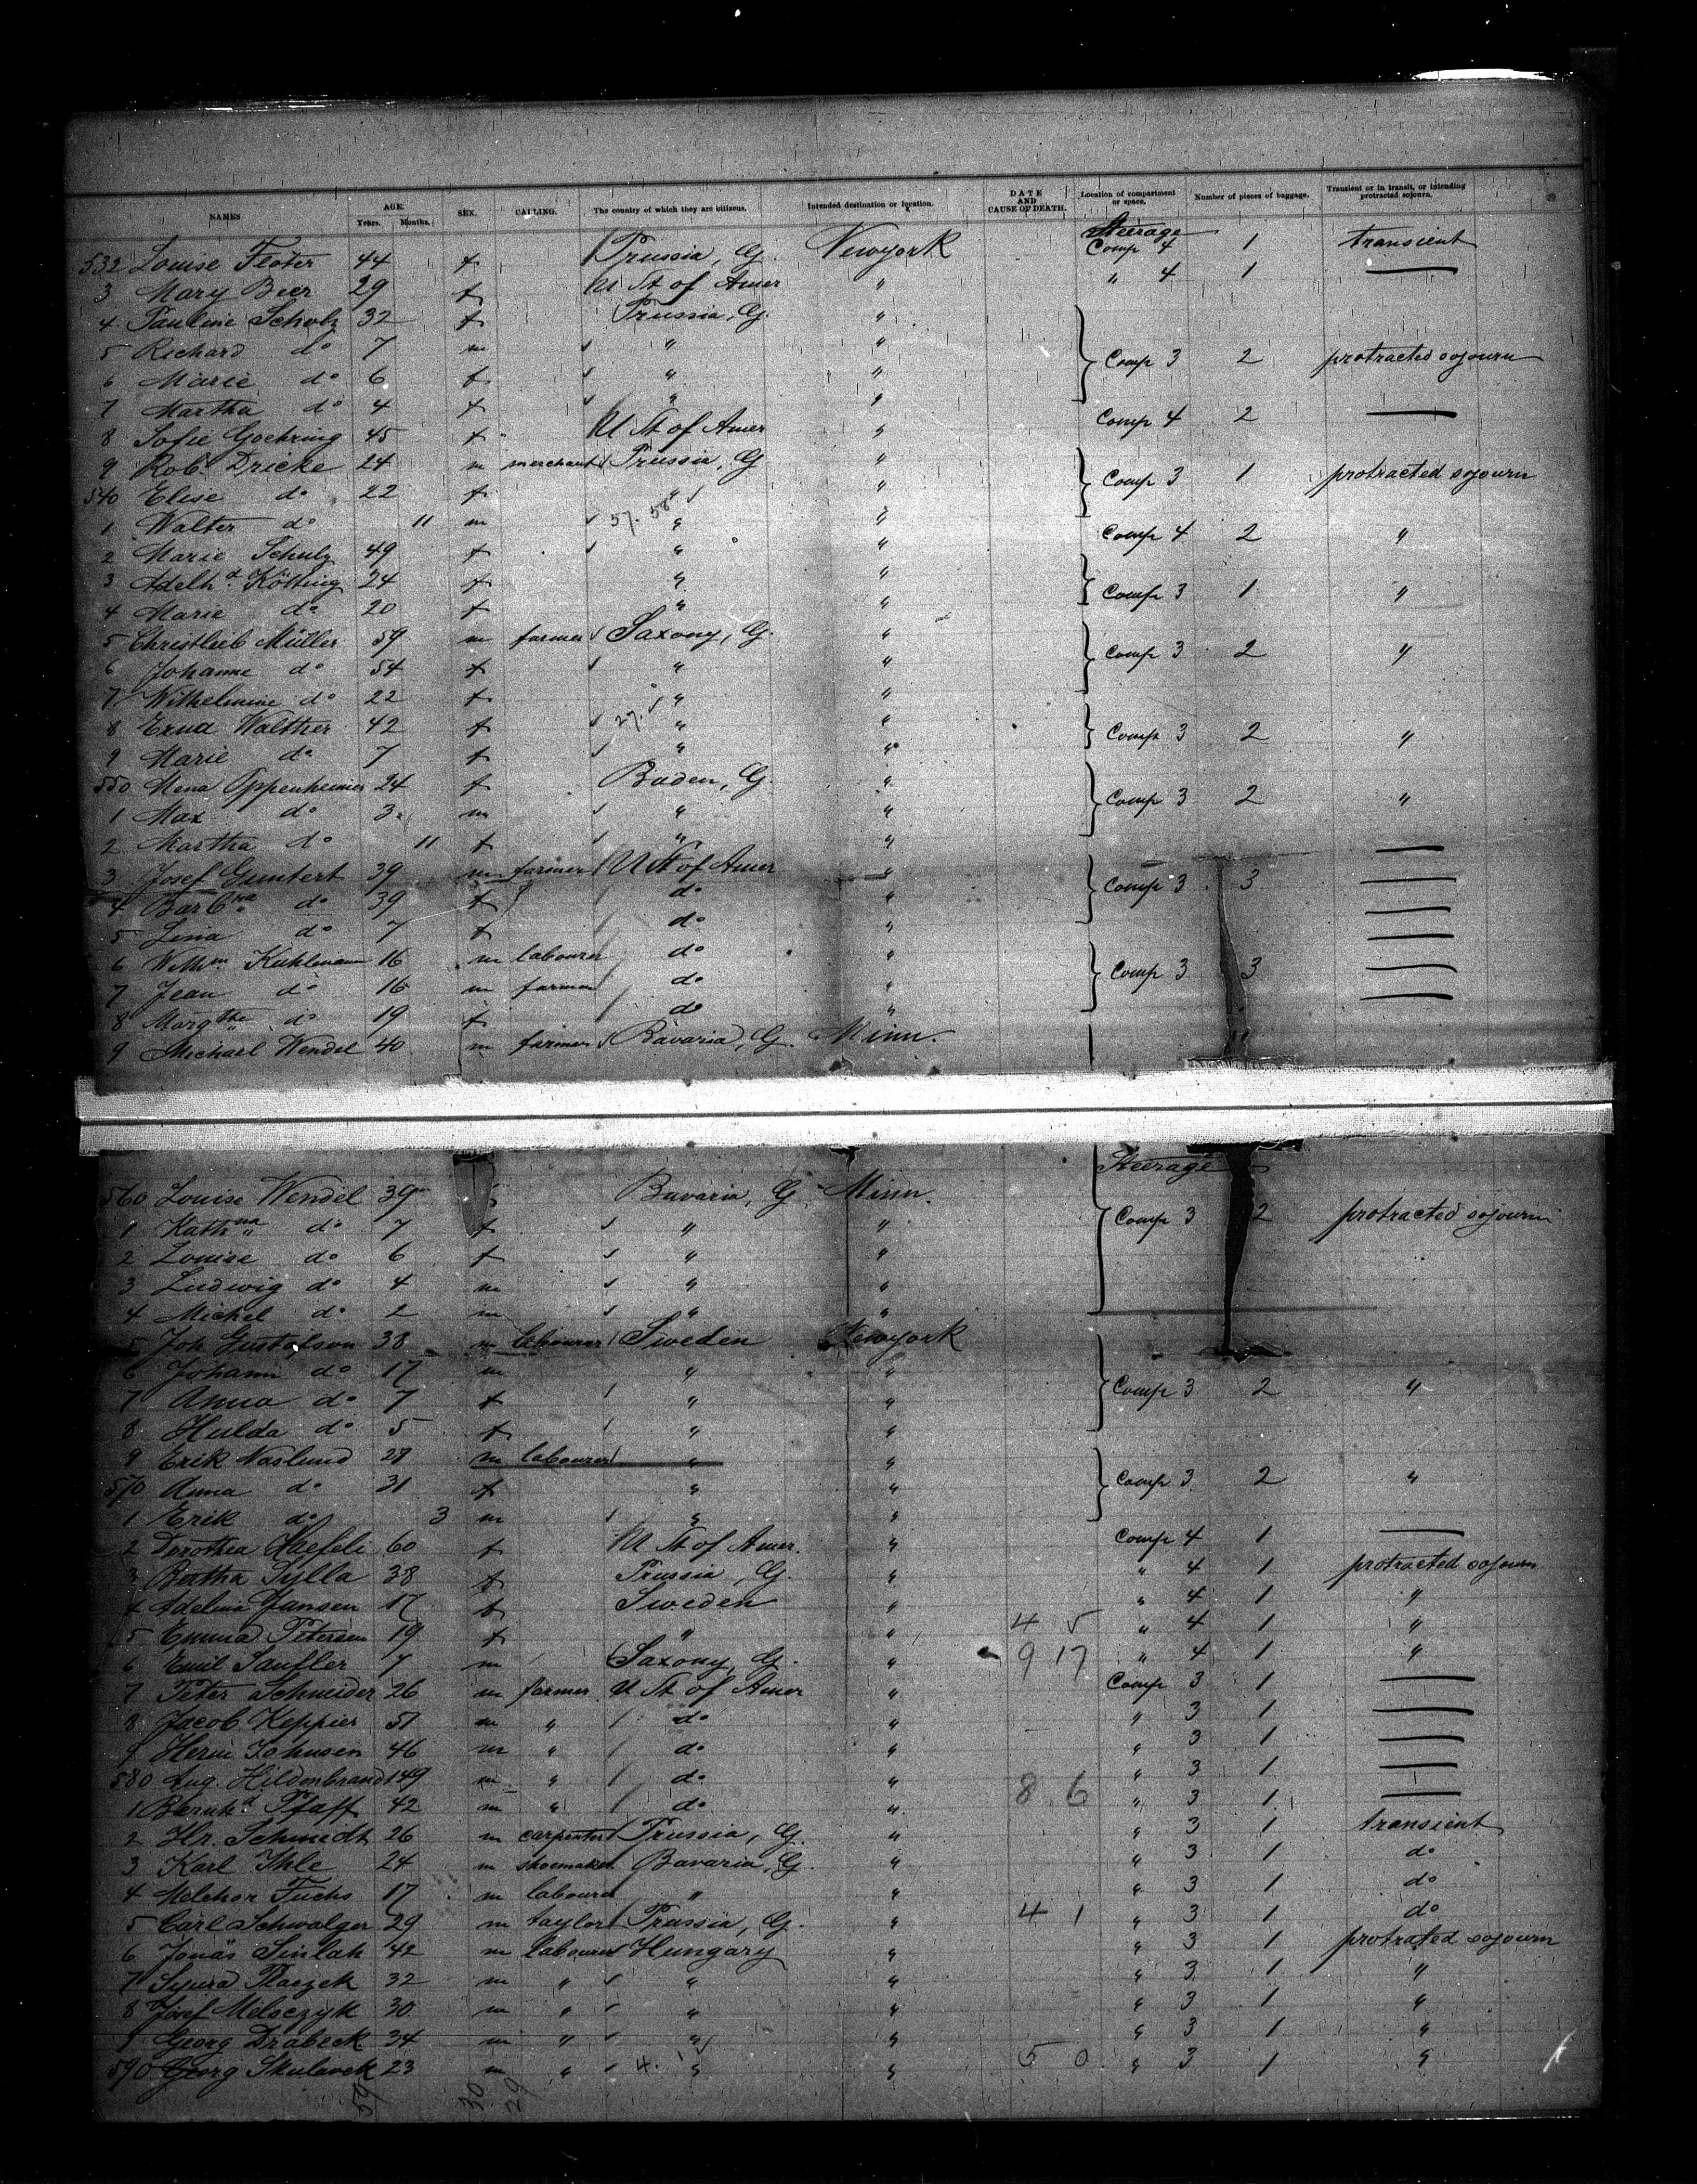 NAMES AGE. Years. Months. SEX. CALLING. The country of which they are citizens. Intended destination or location. DATE AND CAUSE OF DEATH. Location of compartment or space. Number of pieces of baggage. Transient or in transit, or intending protracted sojourn.
532 Louise Floter 44 f Prussia, G. Newyork Steerage Comp 4 1 transient
3 Mary Beer 29 f U St of Amer " " 4 1 —
4 Pauline Scholz 32 f Prussia, G. "
5 Richard do 7 m " " Comp 3 2 protracted sojourn
6 Marie do 6 f " "
7 Martha do 4 f " "
8 Sofie Goehring 45 f U St of Amer " Comp 4 2 —
9 Rob. Dricke 24 m merchant Prussia, G " Comp 3 1 protracted sojourn
540 Elise do 22 f " "
1 Walter do 11 m 57. 58 " "
2 Marie Schulz 49 f " " Comp 4 2 "
3 Adelhd Kötting 24 f " " Comp 3 1 "
4 Marie do 20 f " "
5 Christlieb Müller 59 m farmer Saxony, G. "
6 Johanne do 54 f " " Comp 3 2 "
7 Wilhelmine do 22 f " "
8 Erna Walther 42 f 27. " " Comp 3 2 "
9 Marie do 7 f " "
550 Mena Oppenheimer 24 f Baden, G. "
1 Max do 3 m " " Comp 3 2 "
2 Martha do 11 f " "
3 Josef Guntert 39 m farmer U St of Amer " —
4 Barbra do 39 f do " Comp 3 3 —
5 Lina do 7 f do " —
6 Wilhm Kuhlmann 16 m labourer do " —
7 Jean do 16 m farmer do " Comp 3 3 —
8 Margthe do 19 f do " —
9 Michael Wendel 40 m farmer Bavaria, G. Minn.
Steerage
560 Louise Wendel 39 Bavaria, G. Minn.
1 Kathna do 7 f " " Comp 3 2 protracted sojourn
2 Louise do 6 f " "
3 Ludwig do 4 m " "
4 Michel do 2 m " "
5 Joh Gustafson 38 m labourer Sweden Newyork
6 Johann do 17 m " "
7 Anna do 7 f " " Comp 3 2 "
8 Hulda do 5 f " "
9 Erik Naslund 28 m labourer " "
570 Anna do 31 f " " Comp 3 2 "
1 Erik do 3 m " "
2 Dorothea Haefeli 60 f U St of Amer. " Comp 4 1 —
3 Bertha Sylla 38 f Prussia, G. " " 4 1 protracted sojourn
4 Adelina Jansen 17 f Sweden " " 4 1 "
5 Emma Petersen 19 f " " 4 5 " 4 1 "
6 Emil Saufler 7 m Saxony, G. " 9 17 " 4 1 "
7 Peter Schneider 26 m farmer U St of Amer " Comp 3 1 —
8 Jacob Keppier 51 m " do " " 3 1 —
9 Herm Johnsen 46 m " do " " 3 1 —
580 Aug. Hildenbrand 49 m " do " 8 6 " 3 1 —
1 Barnhd Pfaff 42 m " do " " 3 1 —
2 Hr. Schmidt 26 m carpenter Prussia, G. " " 3 1 transient
3 Karl Ihle 24 m shoemaker Bavaria, G. " " 3 1 do
4 Melchor Fuchs 17 m labourer " " " 3 1 do
5 Carl Schwalger 29 m taylor Prussia, G. " 4 1 " 3 1 do
6 Jonäs Sinlah 42 m labourer Hungary " " 3 1 protrated sojourn
7 Placzek 32 m " " " " 3 1 "
8 Josef Meloczyk 30 m " " " " 3 1 "
9 Georg Drabeck 34 m " " " " 3 1 "
590 Georg Skulavek 23 m " 4. " " 5 0 " 3 1 "
59 30 29